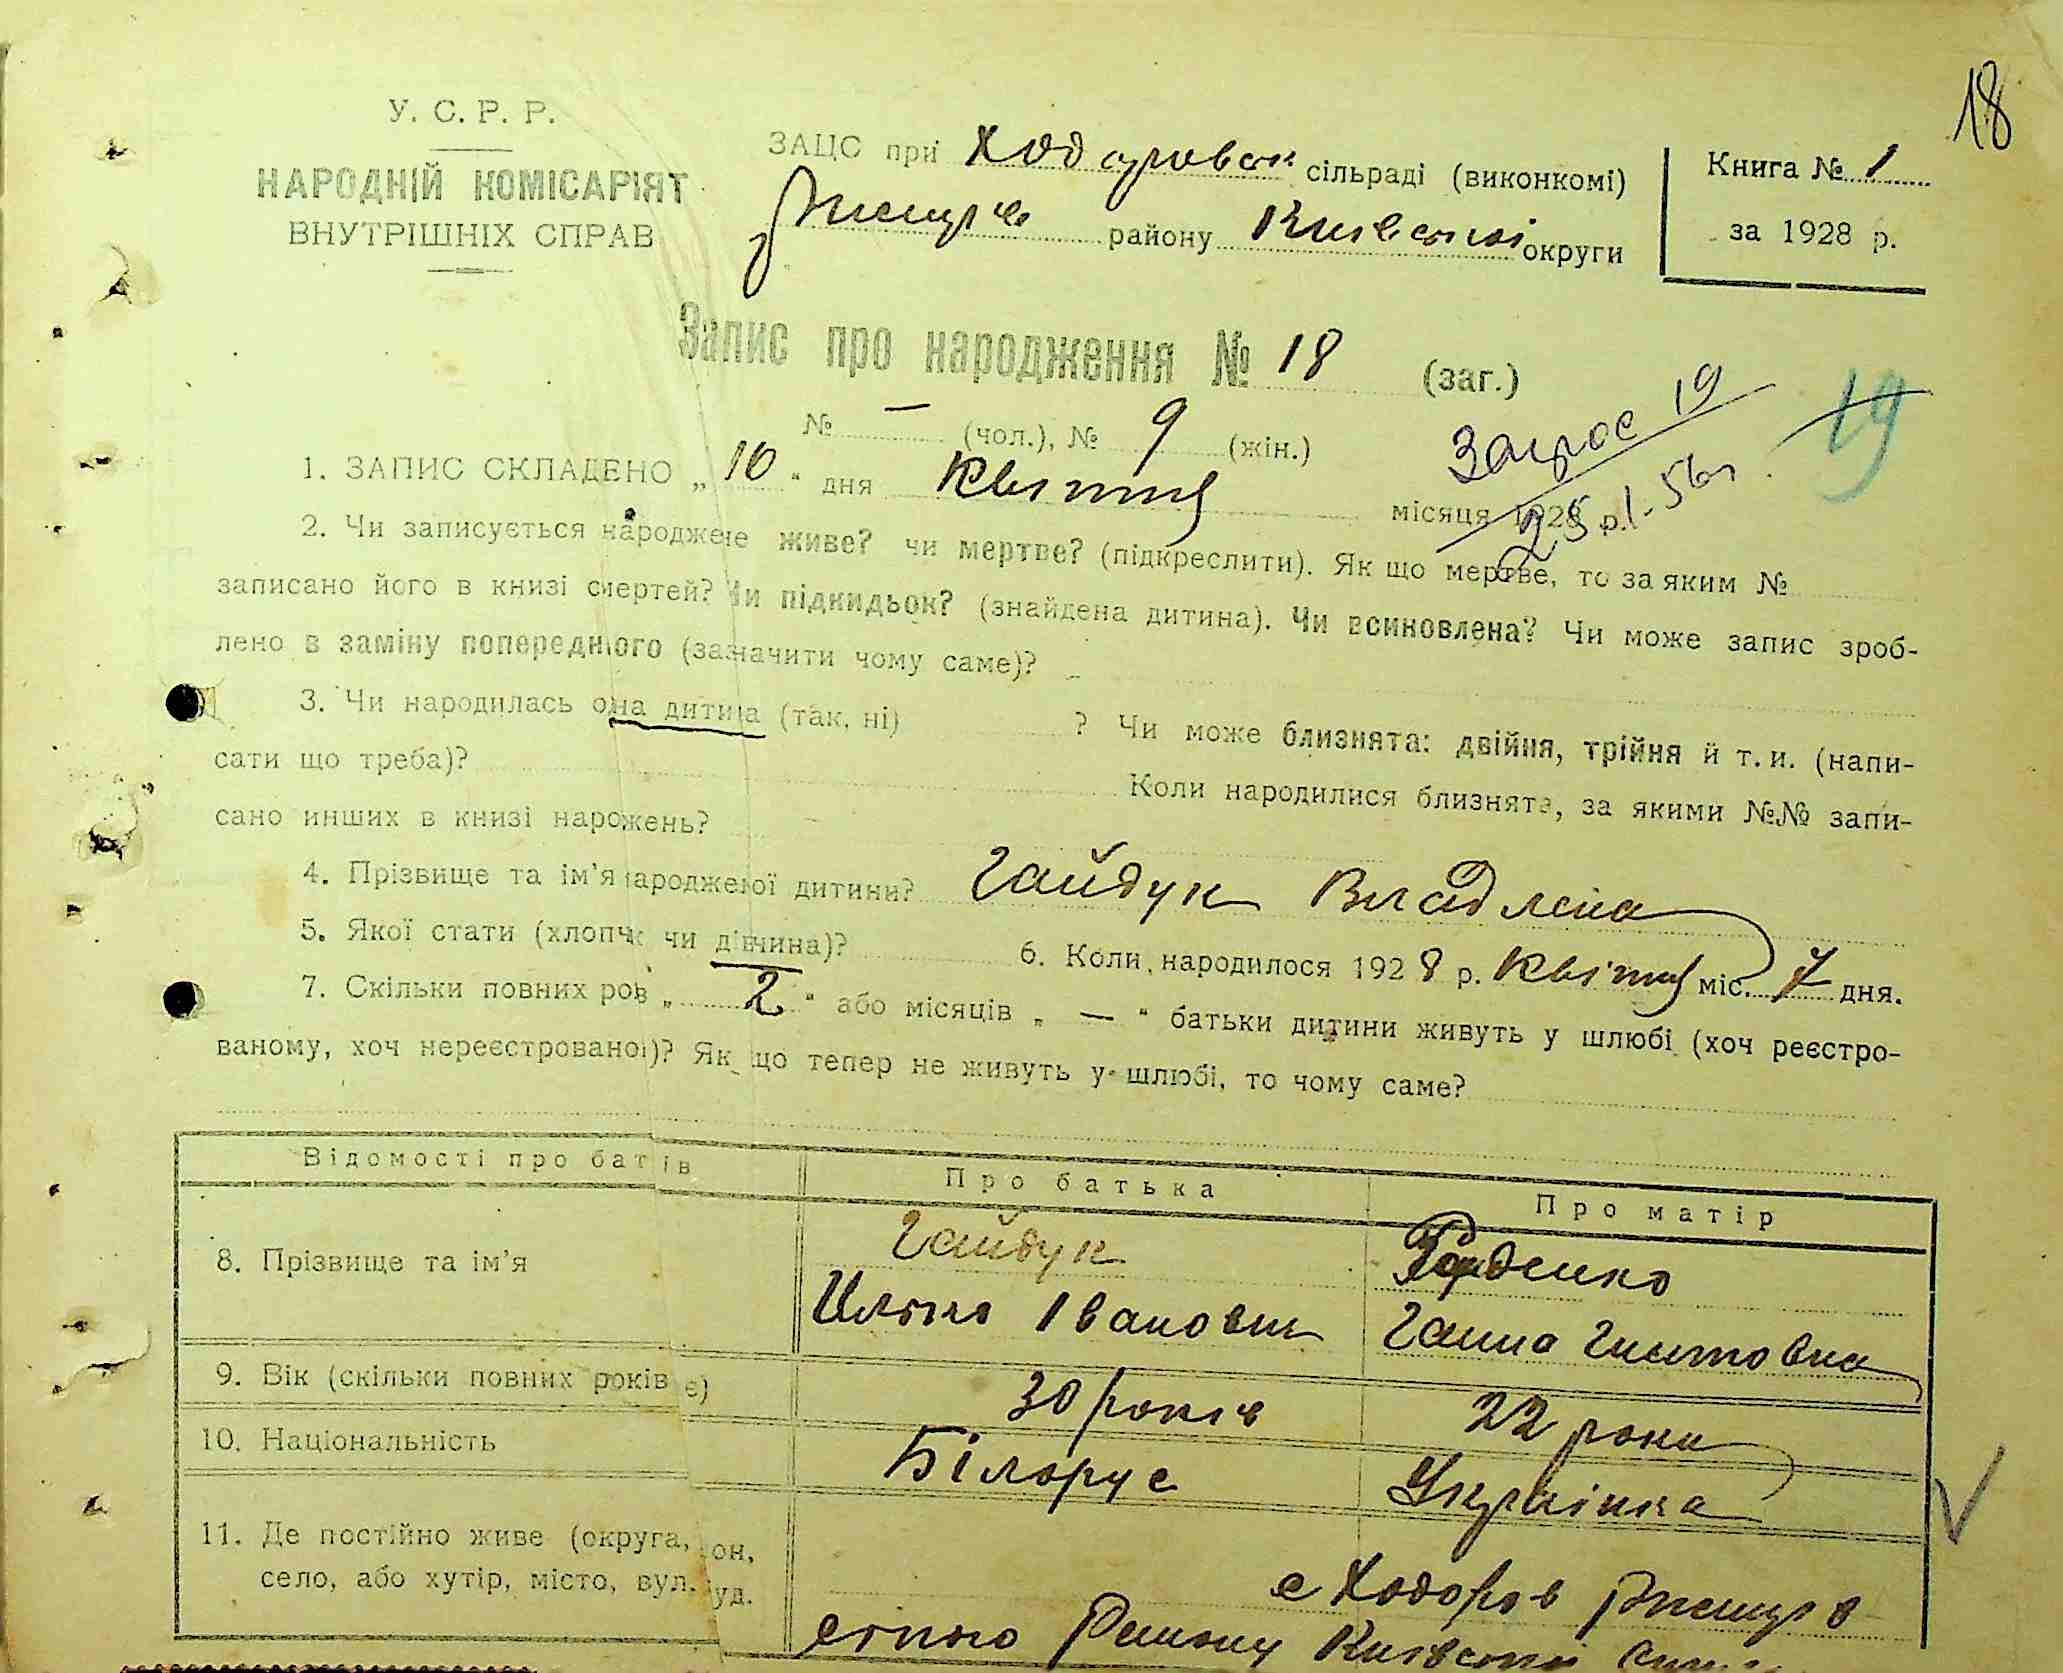 18
У. С. Р. Р.
НАРОДНІЙ КОМІСАРІЯТ
ВНУТРІШНІХ СПРАВ
ЗАЦС при Ходоровск сільраді (виконкомі)
району Київської округи
Книга № 1
за 1928 р.
Запис про народження № 18 (заг.)
№ — (чол.), № 9 (жін.)
19
19
1. ЗАПИС СКЛАДЕНО „10“ дня Квітня місяця 1928 р.
2. Чи записується народжене живе? чи мертве? (підкреслити). Як що мертве, то за яким №
записано його в книзі смертей? Чи підкидьок? (знайдена дитина). Чи всиновлена? Чи може запис зроб-
лено в заміну попереднього (зазначити чому саме)?
3. Чи народилась одна дитина (так, ні) ? Чи може близнята: двійня, трійня й т. и. (напи-
сати що треба)? Коли народилися близнята, за якими №№ запи-
сано инших в книзі нарожень?
4. Прізвище та ім’я народженої дитини? Гайдук Владлена
5. Якої стати (хлопчик чи дівчина)? 6. Коли народилося 1928 р. Квітня міс. 7 дня.
7. Скільки повних років „ 2 “ або місяців „ — “ батьки дитини живуть у шлюбі (хоч реєстро-
ваному, хоч нереєстрованому)? Як що тепер не живуть у шлюбі, то чому саме?
Відомості про батьків Про батька Про матір
8. Прізвище та ім’я Гайдук
Ілько Івановіч Ганна Гнатовна
9. Вік (скільки повних років є) 30 років 22 роки
10. Національність Білорус Українка
11. Де постійно живе (округа, район,
село, або хутір, місто, вул. буд. с Ходоров Ржищев
ського Району Київської